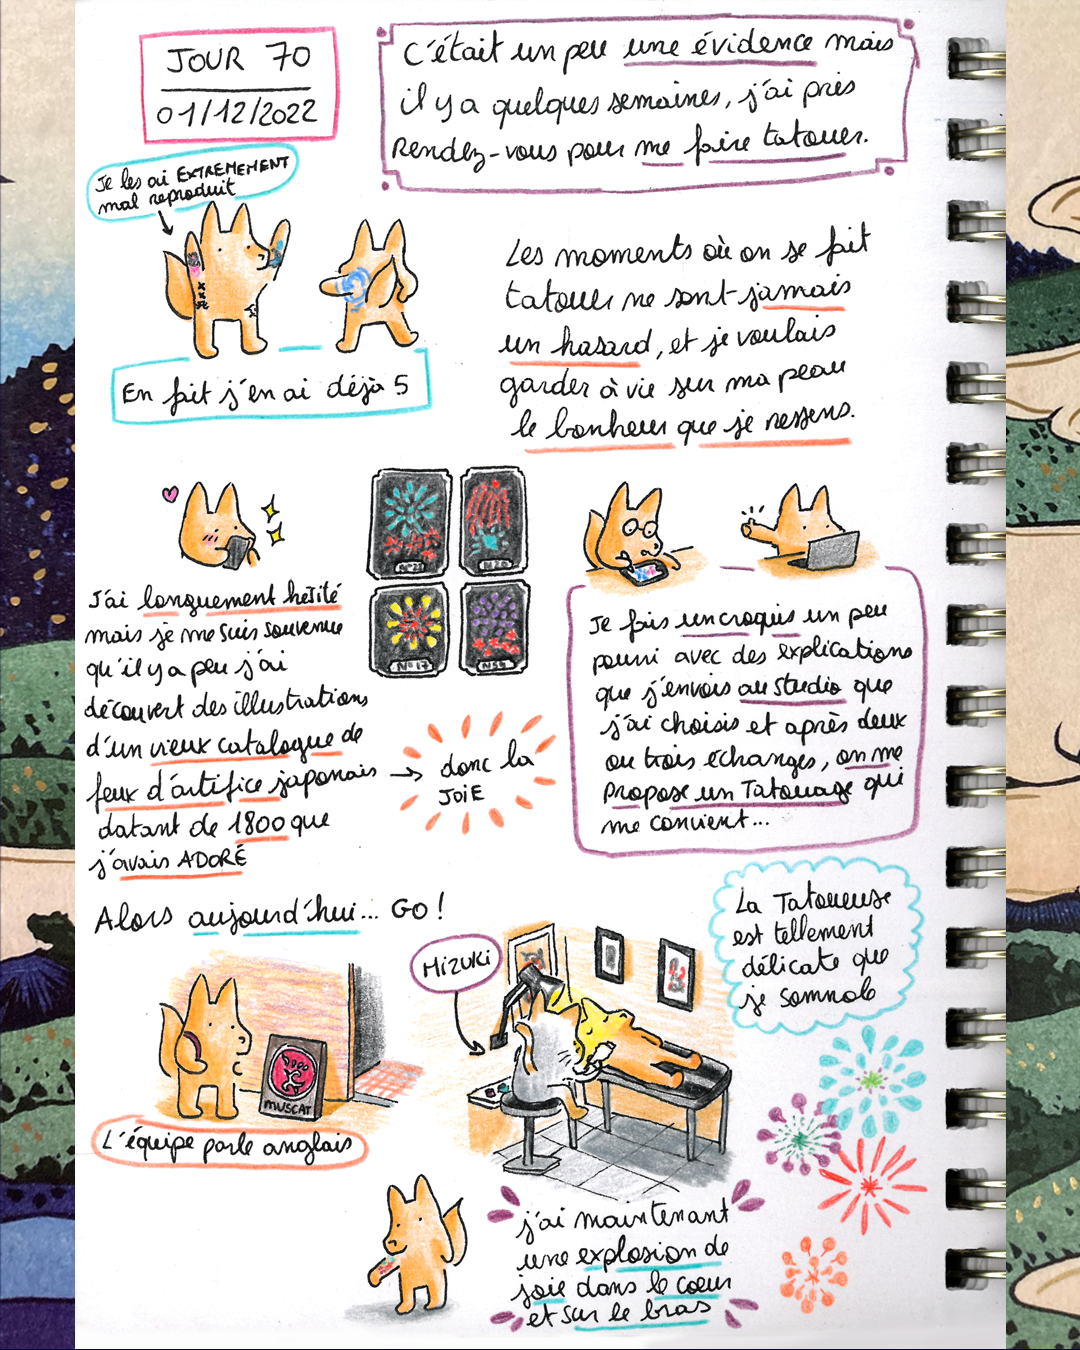 JOUR 70
01/12/2022
C'était un peu une évidence mais
il y a quelques semaines, j'ai pris
rendez-vous pour me faire tatouer.
Je les ai EXTREMEMENT
mal reproduit
En fait j'en ai déjà 5
Les moments où on se fait
tatouer ne sont jamais
un hasard, et je voulais
garder à vie sur ma peau
le bonheur que je ressens.
J'ai longuement hésité
mais je me suis souvenue
qu'il y a peu j'ai
découvert des illustrations
d'un vieux catalogue de
feux d'artifice japonais
datant de 1800 que
j'avais ADORÉ
N°17
donc la
JOIE
Je fais un croquis un peu
pourri avec des explications
que j'envois au studio que
j'ai choisis et après deux
ou trois échanges, on me
propose un Tatouage qui
me convient...
Alors aujourd'hui... GO!
MUSCAT
L'équipe parle anglais
MIZUKI
La Tatoueuse
est tellement
délicate que
je somnole
j'ai maintenant
une explosion de
joie dans le cœur
et sur le bras